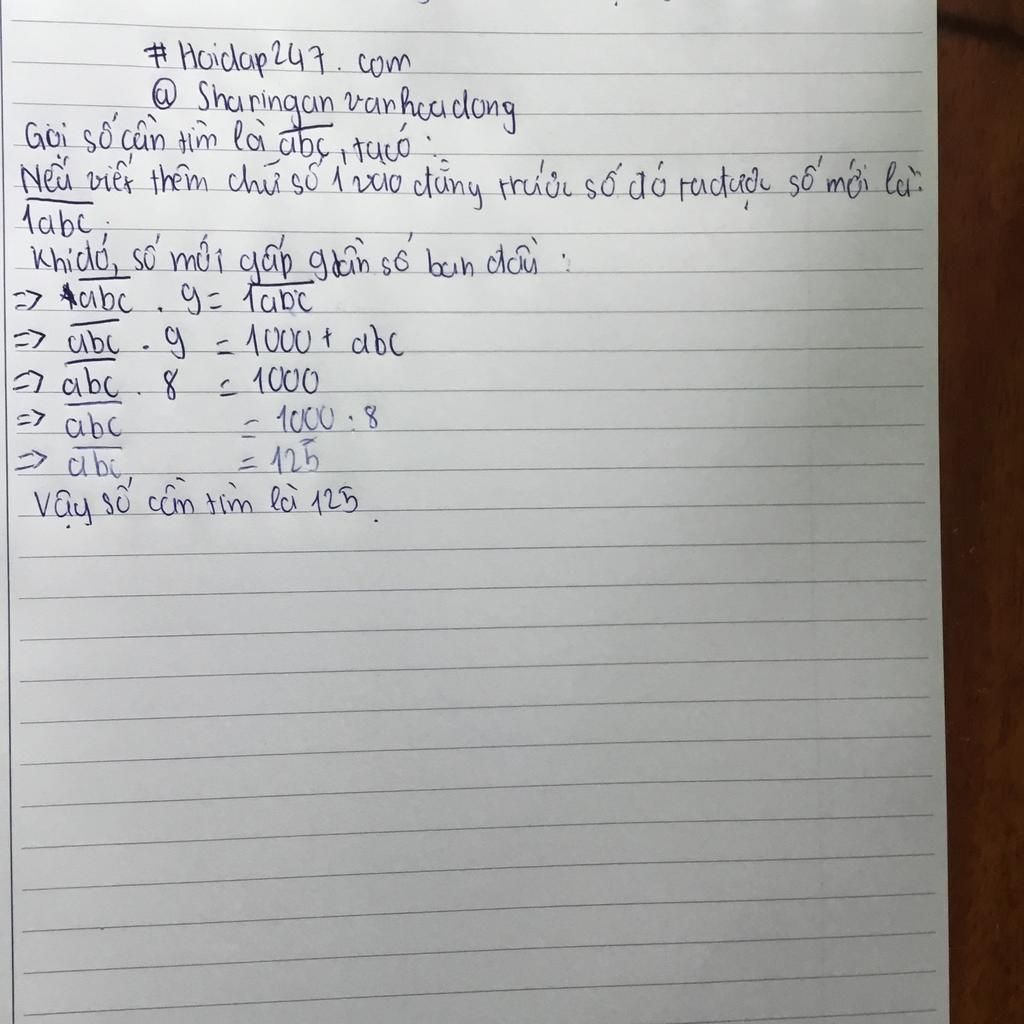 # Hoidap247.com
@ Sharinganvanhoadong
Gọi số cần tìm là abc, ta có:
Nếu viết thêm chữ số 1 vào đằng trước số đó ta được số mới là:
1abc;
Khi đó, số mới gấp 9 lần số ban đầu:
=> abc . 9 = 1abc
=> abc . 9 = 1000 + abc
=> abc . 8 = 1000
=> abc = 1000 : 8
=> abc = 125
Vậy số cần tìm là 125.